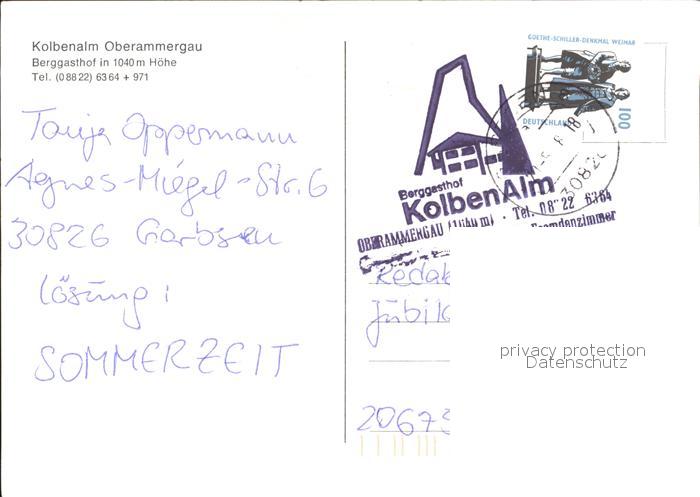 Kolbenalm Oberammergau
Berggasthof in 1040 m Höhe
Tel. (0 88 22) 63 64 + 971
Tanja Oppermann
Agnes-Miegel-Str. 6
30826 Garbsen
Lösung:
SOMMERZEIT
GOETHE-SCHILLER-DENKMAL WEIMAR
DEUTSCHLAND
100
30826
Berggasthof
KolbenAlm
OBERAMMERGAU (1040 m) · Tel. 08822 6364
Fremdenzimmer
Redak
Jübil
20673
privacy protection
Datenschutz